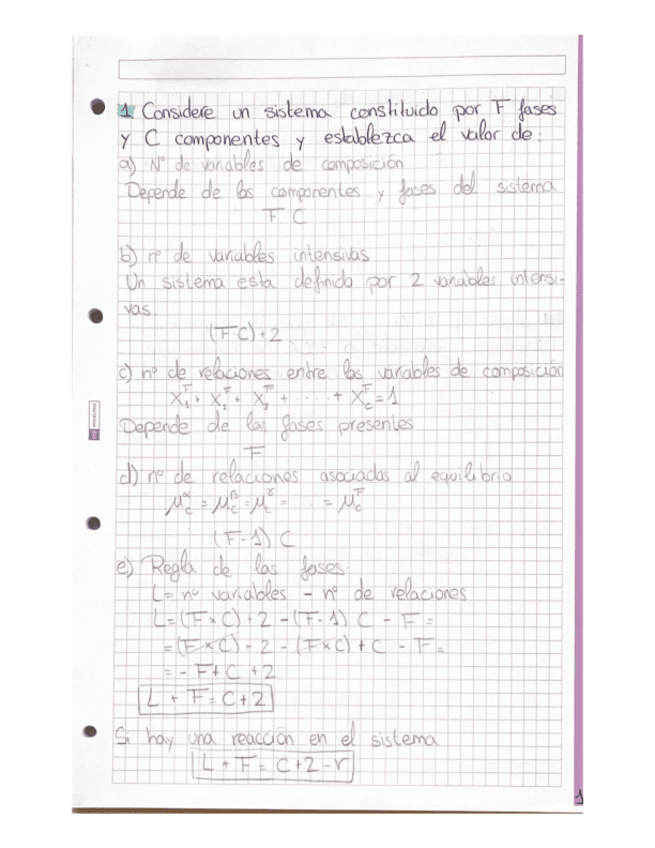 1 Considere un sistema constituido por F fases
y C componentes y establezca el valor de:
a) Nº de variables de composición
Depende de los componentes y fases del sistema
F C
b) nº de variables intensivas
Un sistema esta definido por 2 variables intensi-
vas.
(F C) + 2
c) nº de relaciones entre las variables de composición
X₁ᶠ + X₂ᶠ + X₃ᶠ + ..... + X_cᶠ = 1
Depende de las fases presentes
F
d) nº de relaciones asociadas al equilibrio
μ_c^α = μ_c^β = μ_c^γ = .... = μ_c^F
(F-1) C
e) Regla de las fases.
L = nº variables - nº de relaciones
L = (F × C) + 2 - (F-1) C - F =
= (F × C) + 2 - (F × C) + C - F =
= - F + C + 2
L + F = C + 2
Si hay una reacción en el sistema
L + F = C + 2 - r
1